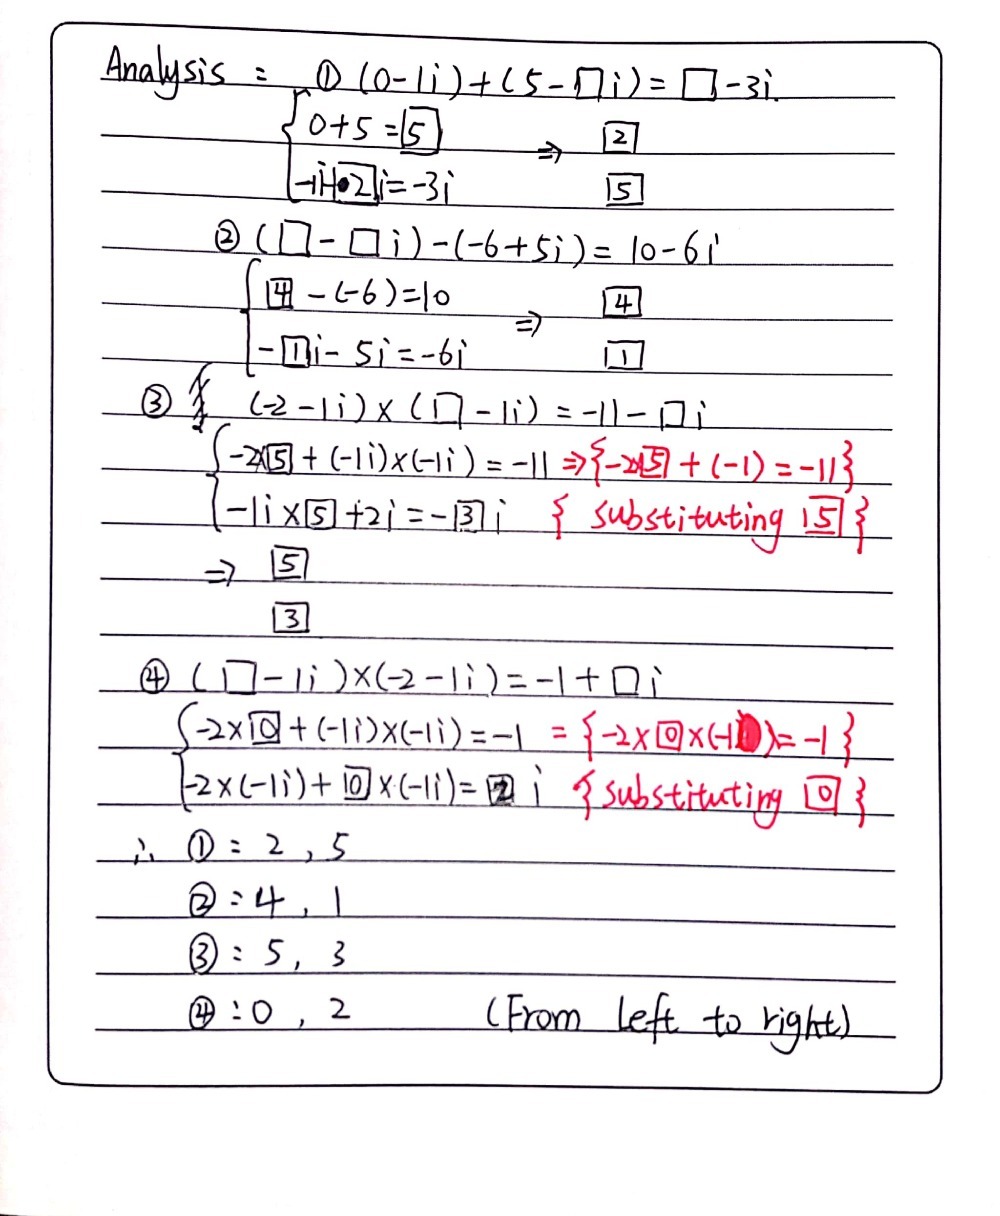 Analysis : ① (0-1i)+(5-□i)=□-3i.
0+5=5 ⇒ 2
-1i-2i=-3i 5
② (□-□i)-(-6+5i)=10-6i
4-(-6)=10 ⇒ 4
-1i-5i=-6i 1
③ (-2-1i)×(□-1i)=-11-□i
-2×5+(-1i)×(-1i)=-11⇒{-2×5+(-1)=-11}
-1i×5+2i=-3i { substituting 5}
⇒ 5
3
④ (□-1i)×(-2-1i)=-1+□i
-2×0+(-1i)×(-1i)=-1 ={-2×0×(-1)=-1}
-2×(-1i)+0×(-1i)=2i {substituting 0}
∴ ①: 2, 5
②: 4, 1
③: 5, 3
④: 0, 2 (From left to right)